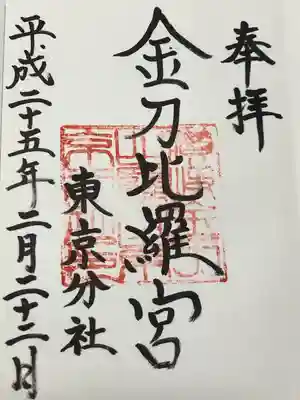 奉拝
金刀比羅宮
東京分社
平成二十五年二月二十二日